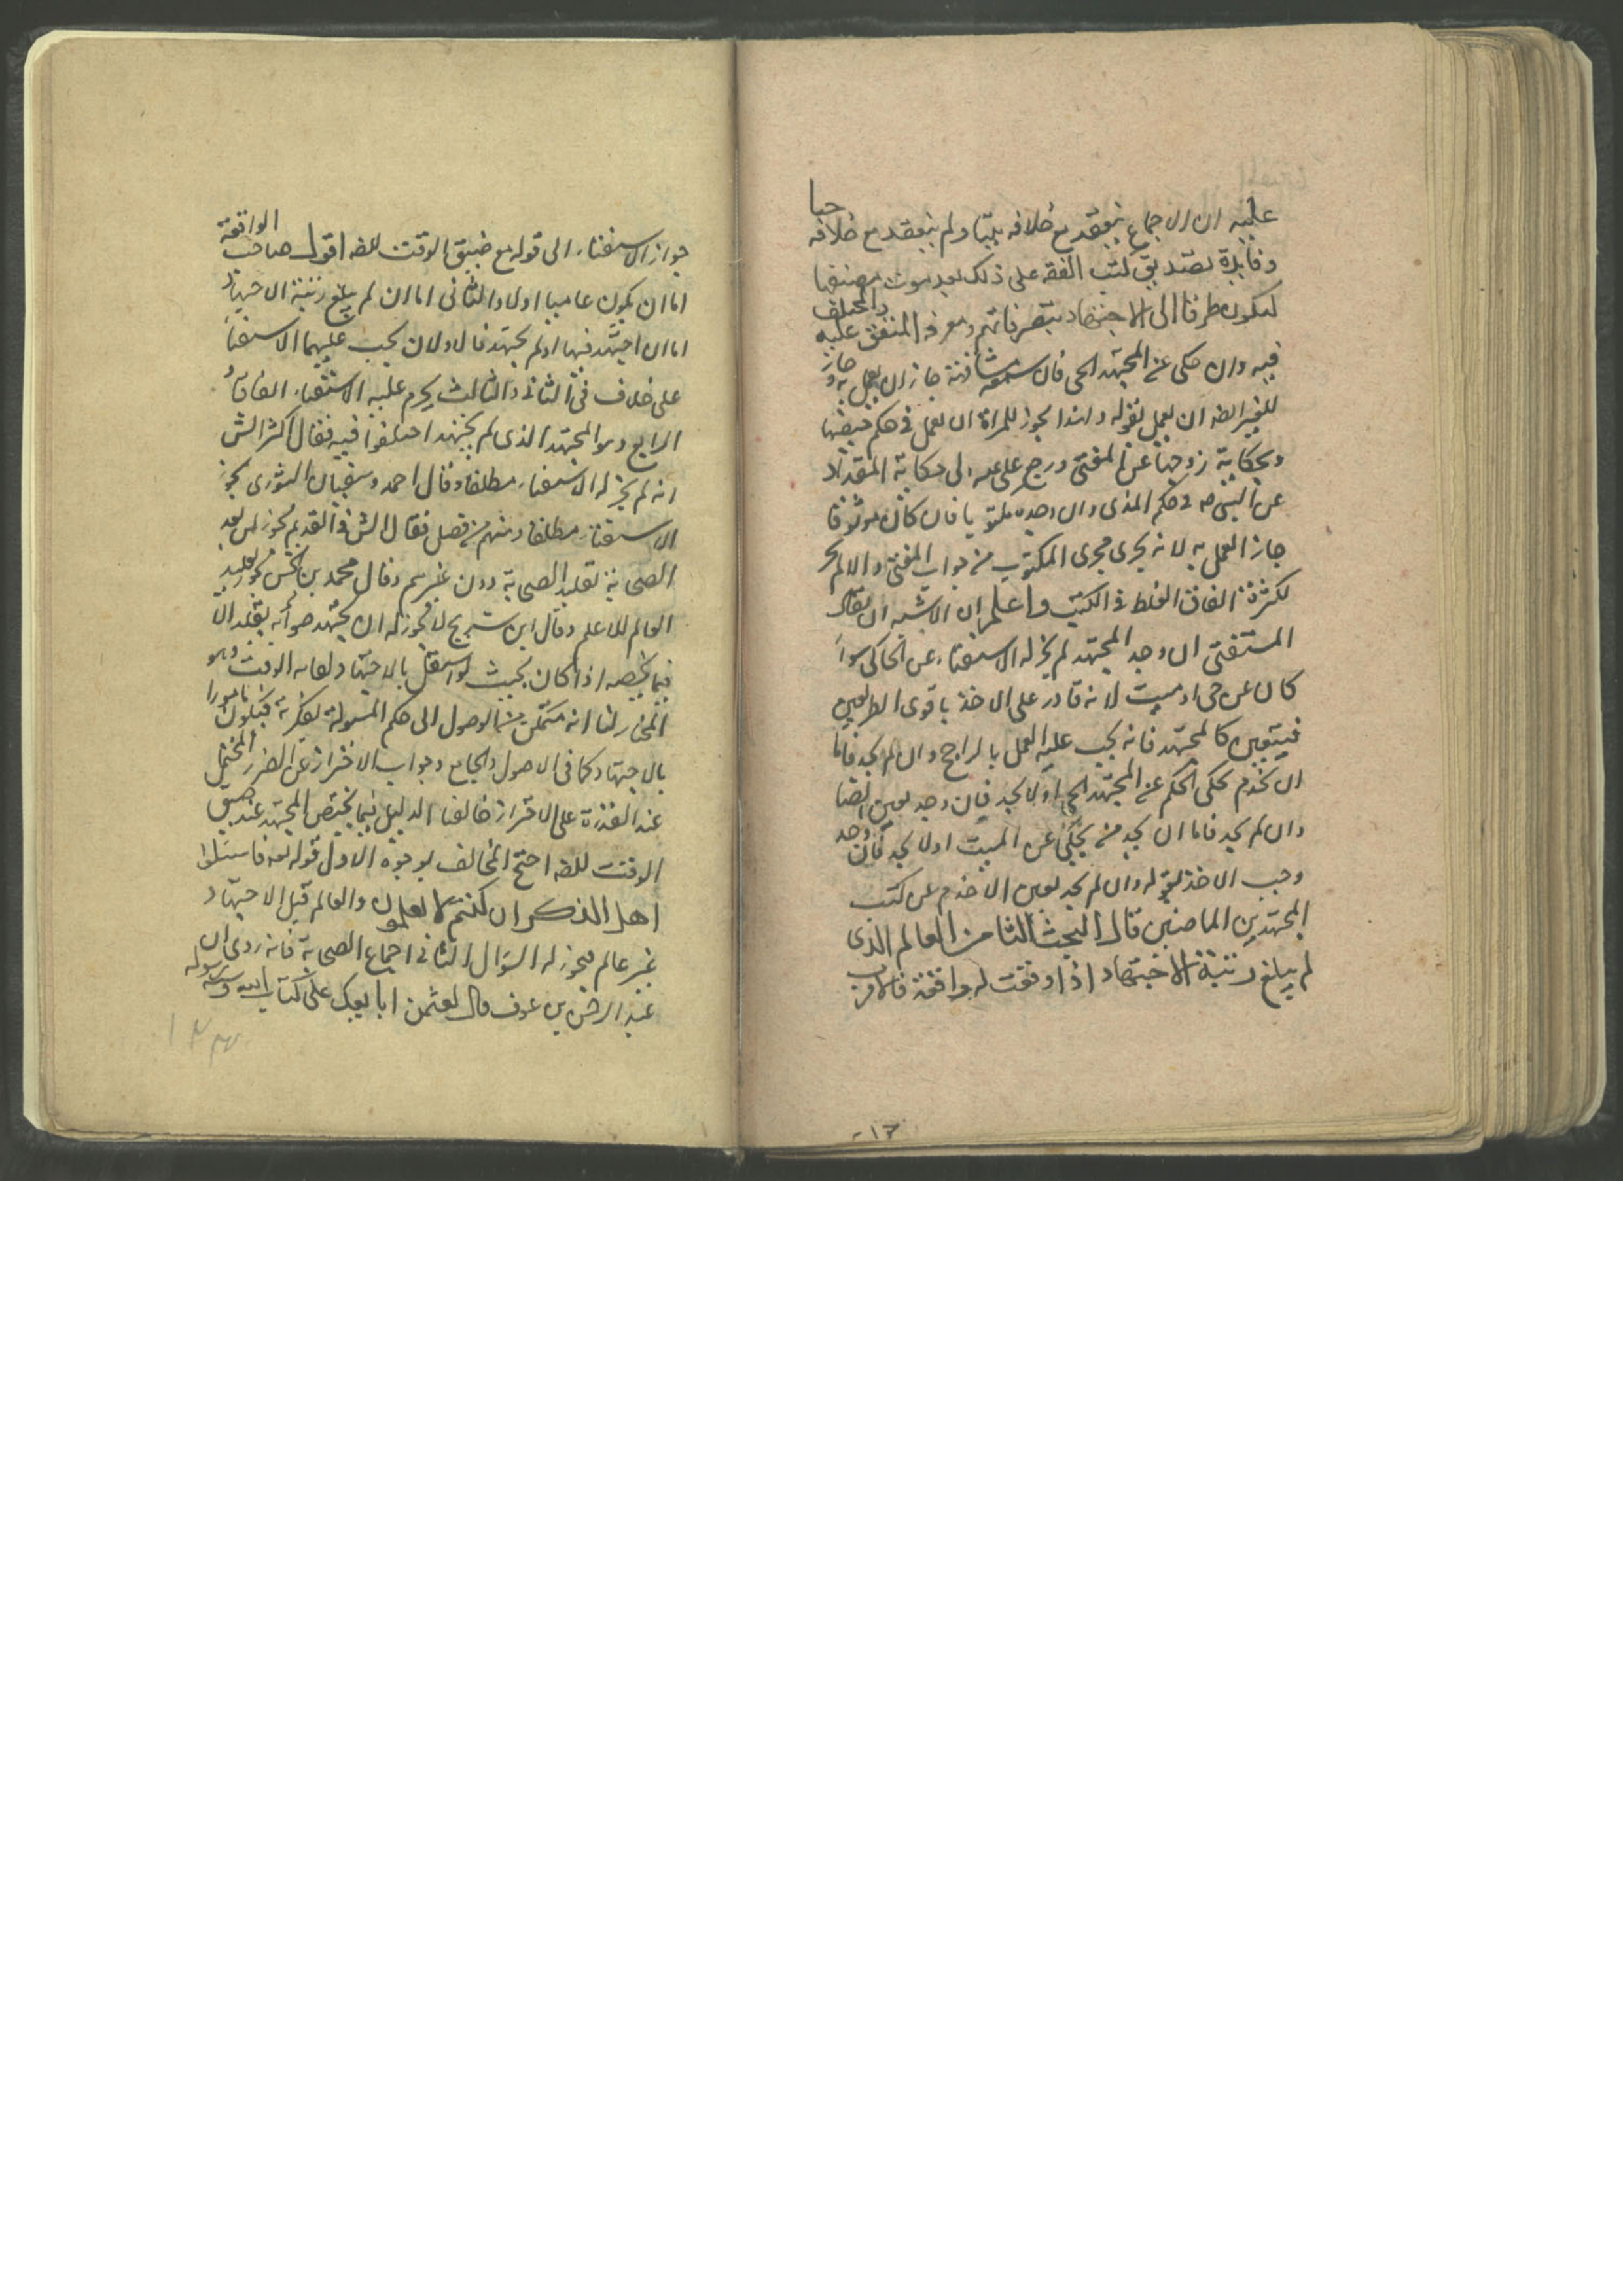 عليه ان الاجماع ينعقد مع خلافه ميتا ولم ينعقد مع خلافه حيا
وفايدة تصنديق كتب الفقه على ذلك بعد موت مصنفها
ليكون طرقا الى الاجتهاد بتصرفاتهم ومعرفة المتفق عليه والمختلف
فيه وان حكى عن المجتهد الحى فان سمعه مشافهة جاز ان يعمل به و جاز
للغير ايضه ان يعمل بقوله ولهذا يجوز للمراة ان تعمل فى حكم حيضها
وبحكاية زوجها عن المفتى ورجع على عم الى حكاية المقداد
عن النبى صه فى حكم المذى وان وجده مكتوبا فان كان موثوقا
جاز العمل به لانه يجرى مجرى المكتوب من جواب المفتى والا لم يجز
لكثرة اتفاق الغلط فى الكتب واعلم ان الاشبه ان يقال
المستفتى ان وجد المجتهد لم يجز له الاستفتاء عن الحاكى سواء
كان عن حى او ميت لانه قادر على الاخذ باقوى الطريقين
فيتعين كالمجتهد فانه يجب عليه العمل بالراجح وان لم يجد فاما
ان يجد من يحكى الحكم عن المجتهد الحى او لا يجد فان وجد تعين ايضا
وان لم يجد فاما ان يجد من يحكى عن الميت او لا يجد فان وجد
وجب الاخذ بقوله وان لم يجد تعين الاخذ من كتب
المجتهدين الماضين قال البحث الثامن العالم الذى
لم يبلغ رتبة الاجتهاد اذا وقعت له واقعة فالاقرب
١٢٠
جواز الاستفتاء الى قوله مع ضيق الوقت للضه اقول صاحب الواقعة
اما ان يكون عاميا اولا والثانى اما ان لم يبلغ رتبة الاجتهاد
اما ان اجتهد فيها او لم يجتهد فالاولان يجب عليهما الاستفتاء
على خلاف فى الثانى والثالث يحرم عليه الاستفتاء اتفاقا و
الرابع وهو المجتهد الذى لم يجتهد اختلفوا فيه فقال اكثر الش
انه لم يجز له الاستفتاء مطلقا وقال احمد وسفيان الثورى يجوز
الاستفتاء مطلقا ومنهم من فصل فقال الش فى القديم يجوز لمن بعد
الصحابة تقليد الصحابة دون غيرهم وقال محمد بن الحسن يجوز تقليد
العالم للاعلم وقال ابن سريج لا يجوز له ان يجتهد سوائه بقلد الا
فيما يخصه اذا كان بحيث لو اشتغل بالاجتهاد لفاته الوقت وهو
المختار لنا انه متمكن من الوصول الى حكم المسولة بفكرته فيكون مامورا
بالاجتهاد كما فى الاصول والجامع وجواب الاحتراز عن الضرر المحتمل
عند القدرة على الاحتراز خالفنا الدليل فيما يختص المجتهد عند ضيق
الوقت للضه احتج المخالف بوجوه الاول قوله تعه فاسئلوا
اهل الذكر ان كنتم لا تعلمون والعالم قبل الاجتهاد
غير عالم فيجوز له السوال الثانى اجماع الصحابة فانه روى ان
عبد الرحمن بن عوف قال لعثمن ابايعك على كتاب الله وسنة رسوله